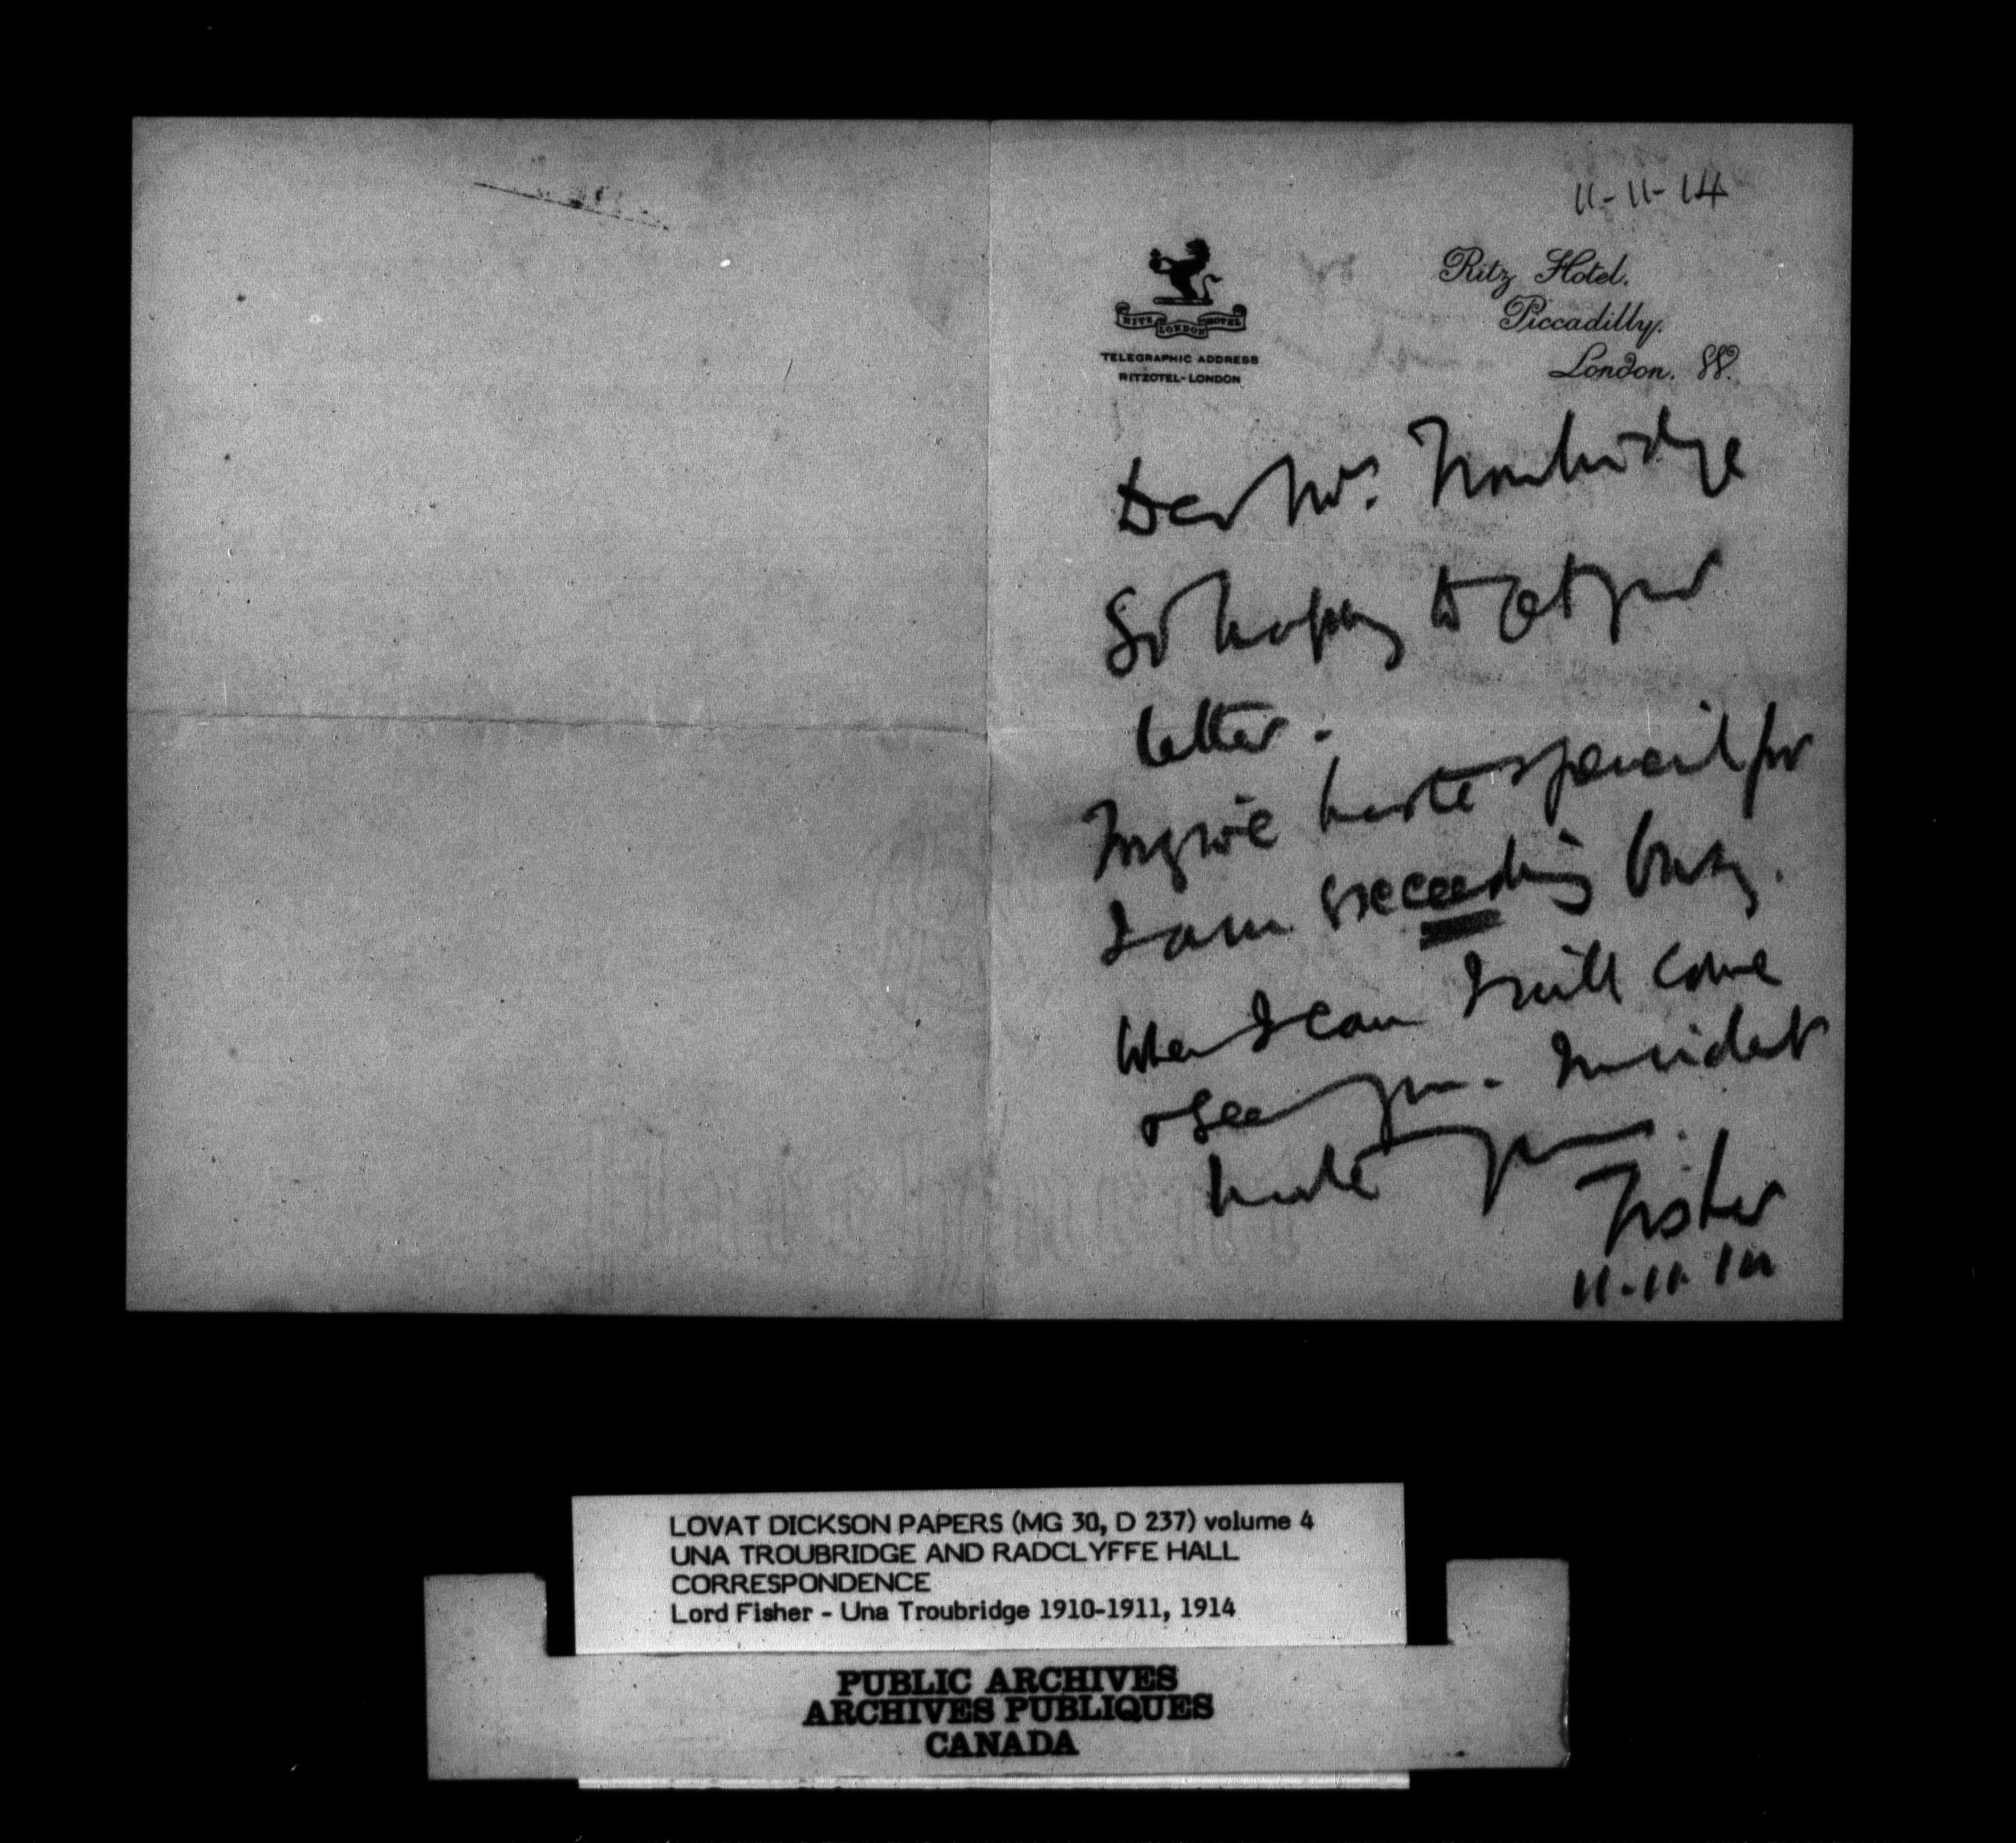 11-11-14
RITZ HOTEL
LONDON
TELEGRAPHIC ADDRESS
RITZOTEL-LONDON
Ritz Hotel,
Piccadilly,
London. W.
Dear Mrs. Troubridge
So happy to get your
letter.
Forgive haste & pencil for
I am exceeding busy.
When I can I will come
& see you. In violent
haste yours
Fisher
11.11.14
LOVAT DICKSON PAPERS (MG 30, D 237) volume 4
UNA TROUBRIDGE AND RADCLYFFE HALL
CORRESPONDENCE
Lord Fisher - Una Troubridge 1910-1911, 1914
PUBLIC ARCHIVES
ARCHIVES PUBLIQUES
CANADA